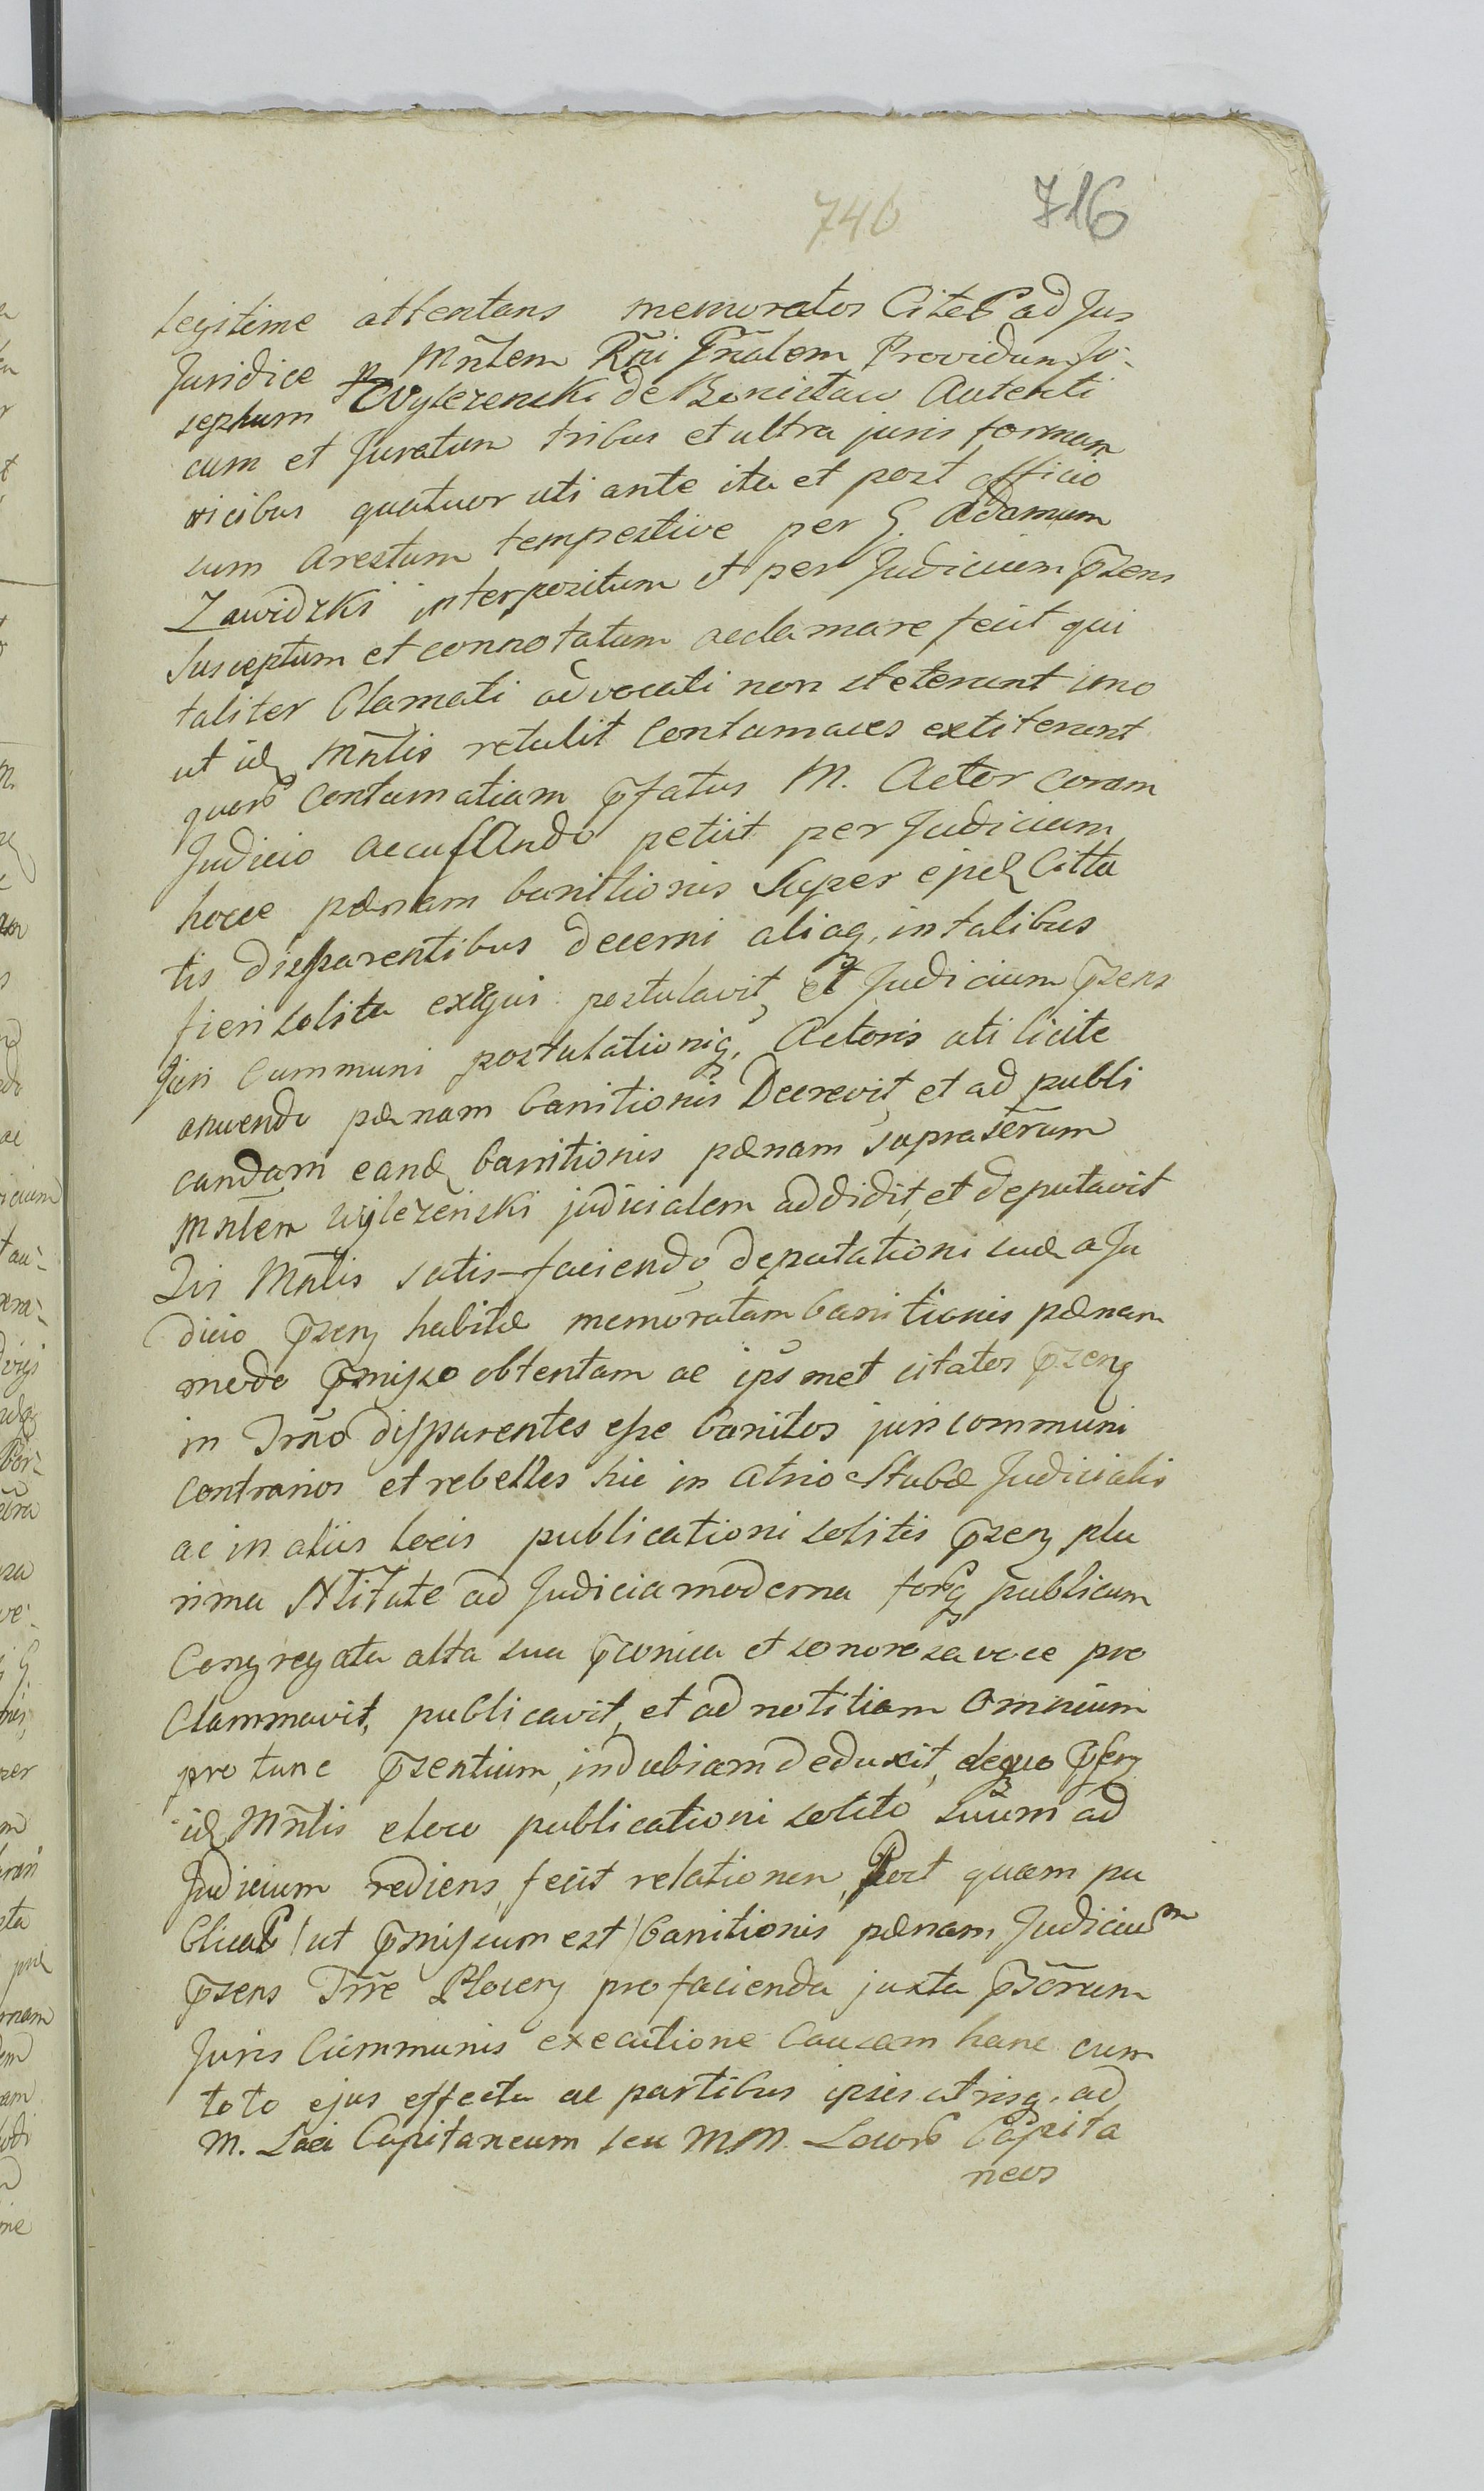 740 716
legitime attentans memoratos Citatos ad Jus
Juridice p Mñlem Rñi Gñalem Providum Jo-
sephum Wylezenski de Bonisław Autenti
cum et Juratum tribus et ultra juris formam
vicibus quatuor uti ante ita et post officio
sum Arestum tempestive per G. Adamum
Zawidzki interpositum et per Judicium p̃zens
Susceptum et connotatum acclamare fecit qui
taliter Clamati advocati non steterunt imo
ut idq Mñlis retulit Contumaces extiterunt
quorum Contumatiam p̃fatus M. Actor coram
Judicio accusando petiit per Judicium
hocce pœnam banitionis Super ejusd Citta
tis disparentibus decerni aliaq, in talibus
fieri solita exigui postulavit, et Judicium p̃zens
Juri Cummuni postulationiq, Actoris uti licite
anuendo pænam banitionis Decrevit, et ad publi
candam eand banitionis pænam suprasẽrum
Mñlem Wyleżenski judicialem addidit, et deputavit
Qui Mñlis satis-faciendo deputationi suæ a Ju
dicio p̃zenq habitæ memoratam banitionis pænam
modo p̃misso obtentam ac ipsmet citatos p̃zenq
in Trño disparentes esse banitos juri communi
Contrarios et rebelles hic in Atrio Stubæ Judicialis
ac in aliis locis publicationi solitis p̃zenq plu
rima Ntitate ad Judicia moderna forq publicum
Congregata alta sua p̃conica et sonorosa voce pro
Clammavit, publicavit, et ad notitiam Omnium
pro tunc p̃zentium, indubiam deduxit, dequo p̃senq
idq Mñlis eloco publicationi solito suum ad
Judicium rediens, fecit relationem, Post quam pu
blicat / ut p̃missum est / banitionis pænam Judicium
p̃zens Trre Plocenq pro facienda juxta p̃sõrum
Juris Cummunis executione Causam hanc cum
toto ejus effectu ac partibus ipsis utrisq, ad
M. Loci Capitaneum seu MM. Locorum Capita
neos